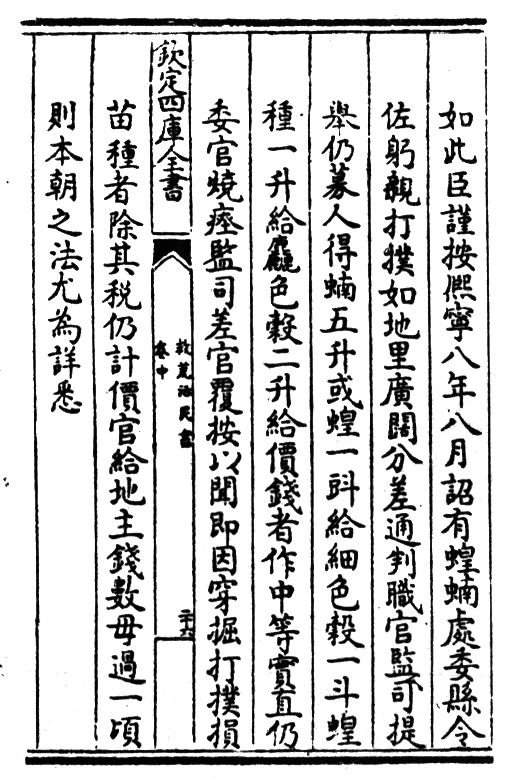 如此臣謹按熈寧八年八月詔有蝗蝻處委縣令
佐躬親打撲如地里廣闊分差通判職官監司提
舉仍募人得蝻五升或蝗一㪷給細色穀一斗蝗
種一升給麤色穀二升給價錢者作中等實直仍
委官燒瘞監司差官覆按以聞即因穿掘打撲損
欽定四庫全書
救荒活民書
卷中
二十六
苗種者除其税仍計價官給地主錢數毋過一頃
則本朝之法尤為詳悉